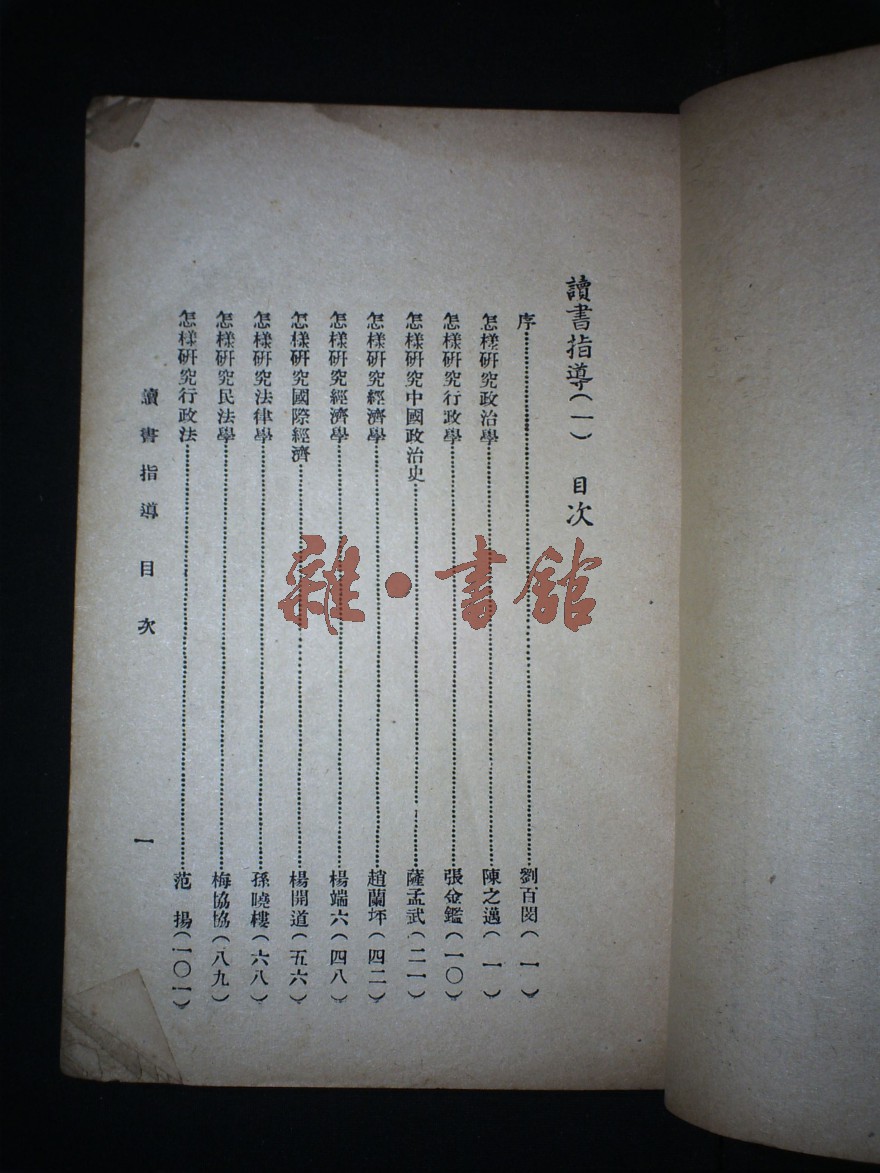 讀書指導(一) 目次
序……劉百閔(一)
怎樣研究政治學……陳之邁(一)
怎樣研究行政學……張金鑑(一〇)
怎樣研究中國政治史……薩孟武(二一)
怎樣研究經濟學……趙蘭坪(四二)
怎樣研究經濟學……楊端六(四八)
怎樣研究國際經濟……楊開道(五六)
怎樣研究法律學……孫曉樓(六八)
怎樣研究民法學……梅協協(八九)
怎樣研究行政法……范揚(一〇一)
讀書指導 目次 一
雜·書館